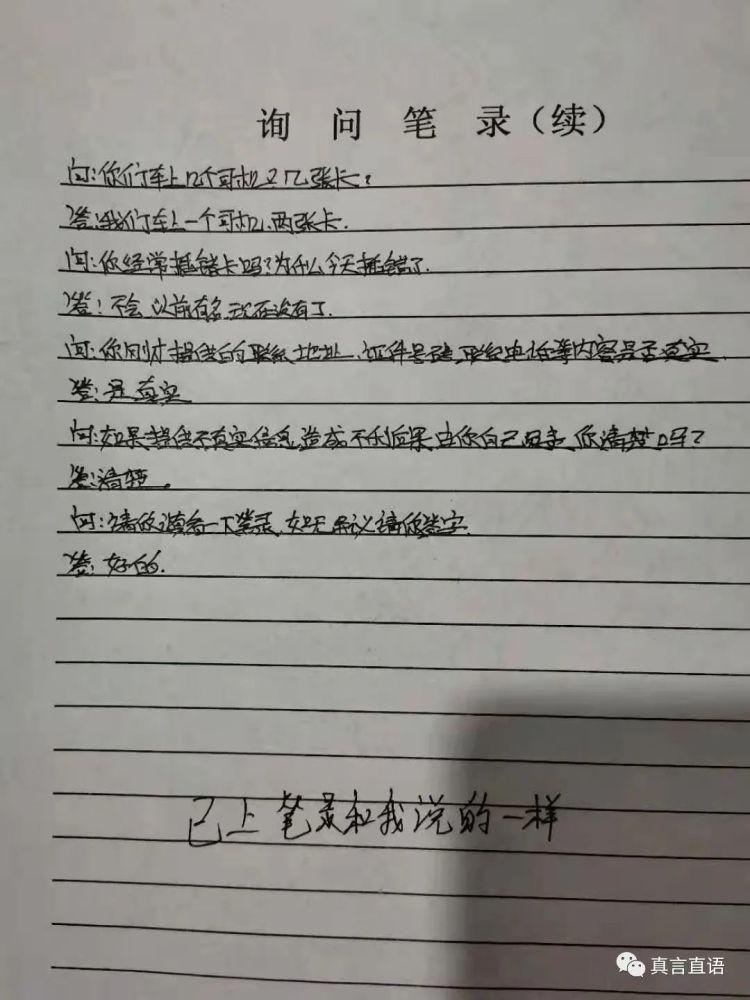 询 问 笔 录（续）
问：你们车上几个司机又几张卡？
答：我们车上一个司机，两张卡.
问：你经常插错卡吗？为什么今天插错了.
答：不会 以前有多 现在没有了.
问：你刚才提供的联系地址、证件号码、联系电话等内容是否真实.
答：是真实
问：如果提供不真实信息造成不利后果由你自己负责 你清楚吗？
答：清楚。
问：请你阅看一下笔录，如无异议请你签字.
答：好的.
已上笔录和我说的一样
真言直语